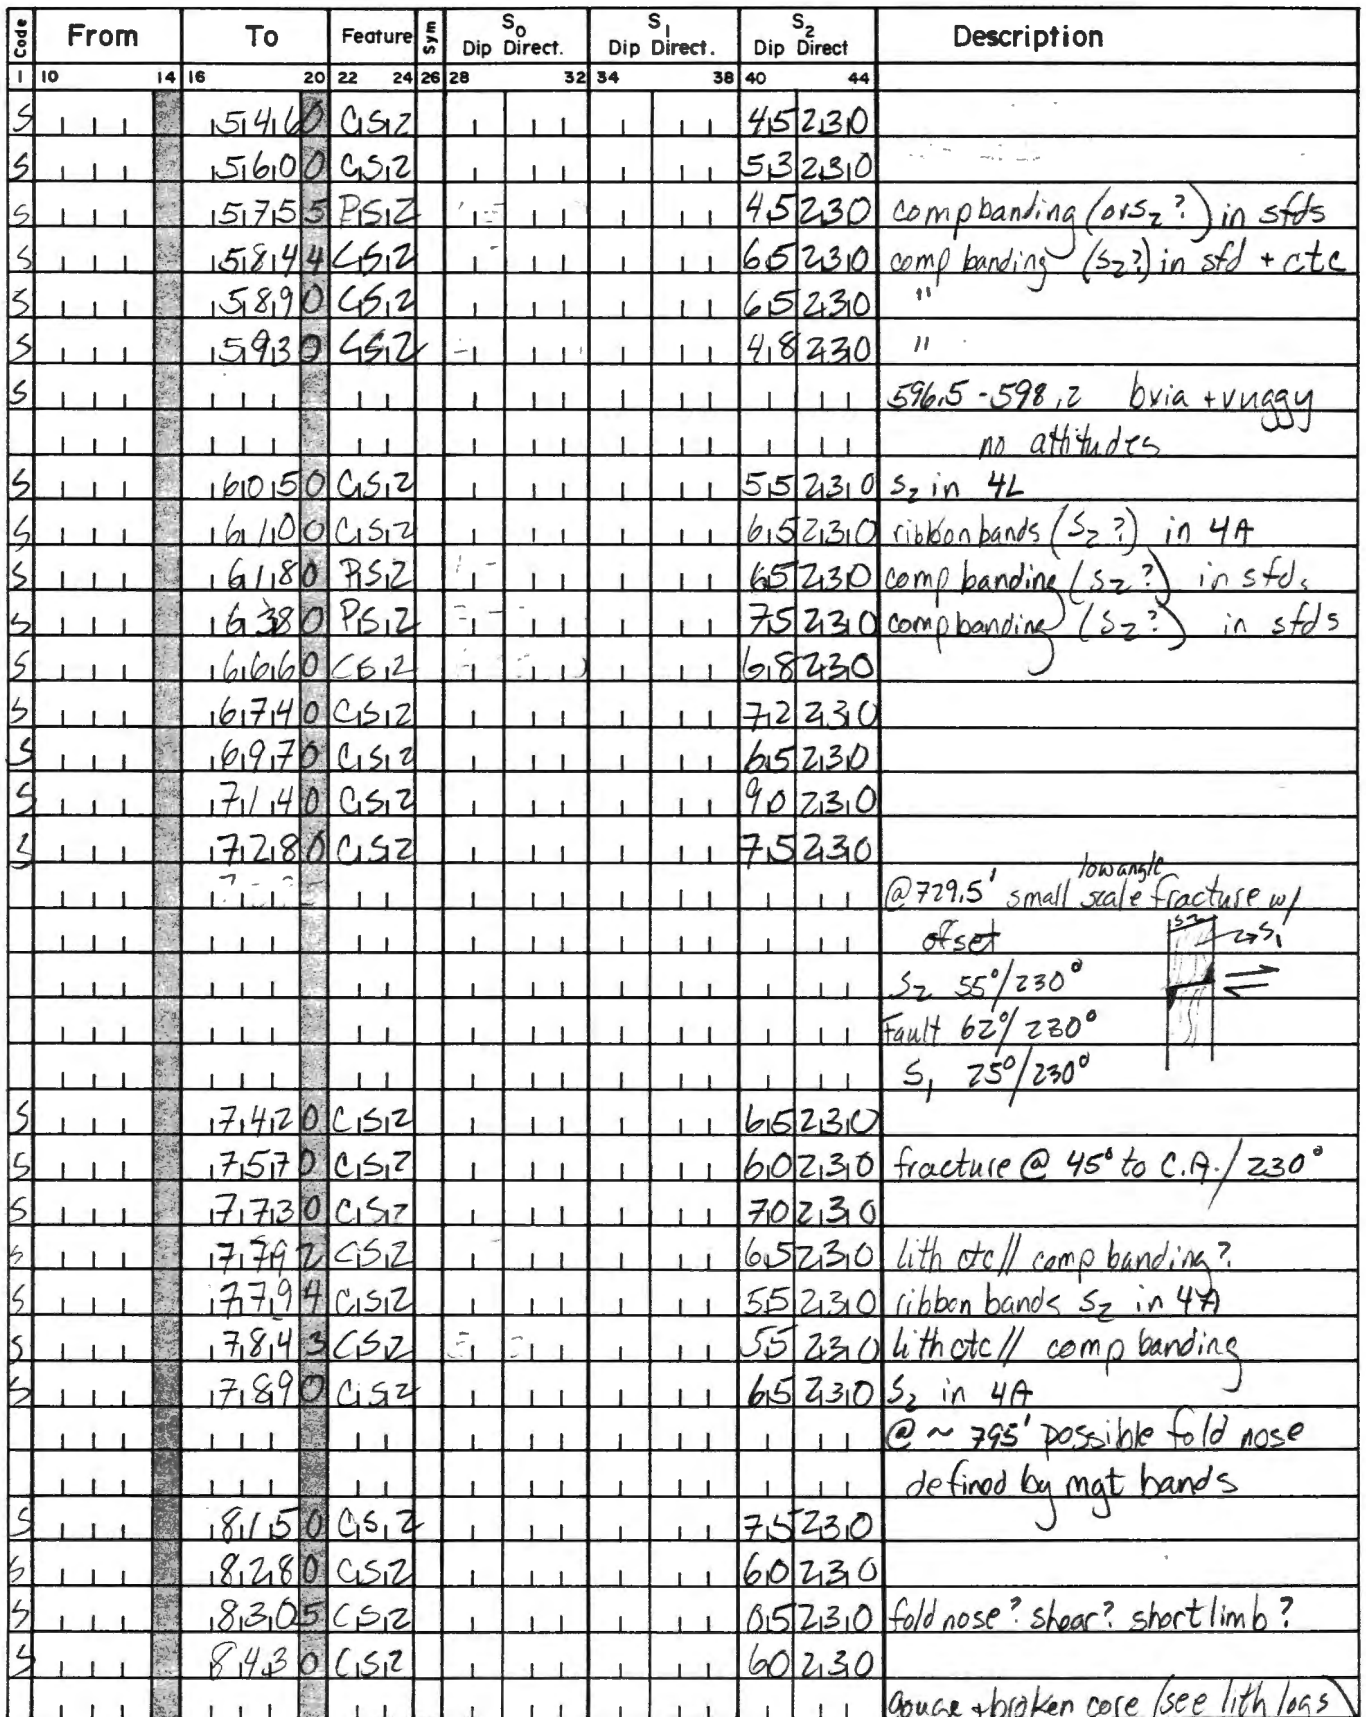 Code From To Feature Sym S0 Dip Direct. S1 Dip Direct. S2 Dip Direct Description
1 10 14 16 20 22 24 26 28 32 34 38 40 44
S 5460 CS2 45 230
S 5600 CS2 53 230
S 5755 PS2 45 230 comp banding (or S2?) in sfds
S 5844 CS2 65 230 comp banding (S2?) in sfd + ctc
S 5890 CS2 65 230 "
S 5930 CS2 48 230 "
S 596.5 - 598.2 bxia + vuggy
no attitudes
S 6050 CS2 55 230 S2 in 4L
S 6100 CS2 65 230 ribbon bands (S2?) in 4A
S 6180 PS2 65 230 comp banding (S2?) in sfds
S 6380 PS2 75 230 comp banding (S2?) in sfds
S 6660 CS2 68 230
S 6740 CS2 72 230
S 6970 CS2 65 230
S 7140 CS2 90 230
S 7280 CS2 75 230
low angle
@ 729.5' small scale fracture w/
ofset S2 S1
S2 55°/230°
Fault 62°/230°
S1 25°/230°
S 7420 CS2 65 230
S 7570 CS2 60 230 fracture @ 45° to C.A. / 230°
S 7730 CS2 70 230
S 7792 CS2 65 230 lith ctc // comp banding?
S 7794 CS2 55 230 ribbon bands S2 in 4A
S 7843 CS2 55 230 lith ctc // comp banding
S 7890 CS2 65 230 S2 in 4A
@ ~ 795' possible fold nose
defined by mgt bands
S 8150 CS2 75 230
S 8280 CS2 60 230
S 8305 CS2 05 230 fold nose? shear? short limb?
S 8430 CS2 60 230
gouge + broken core (see lith logs)